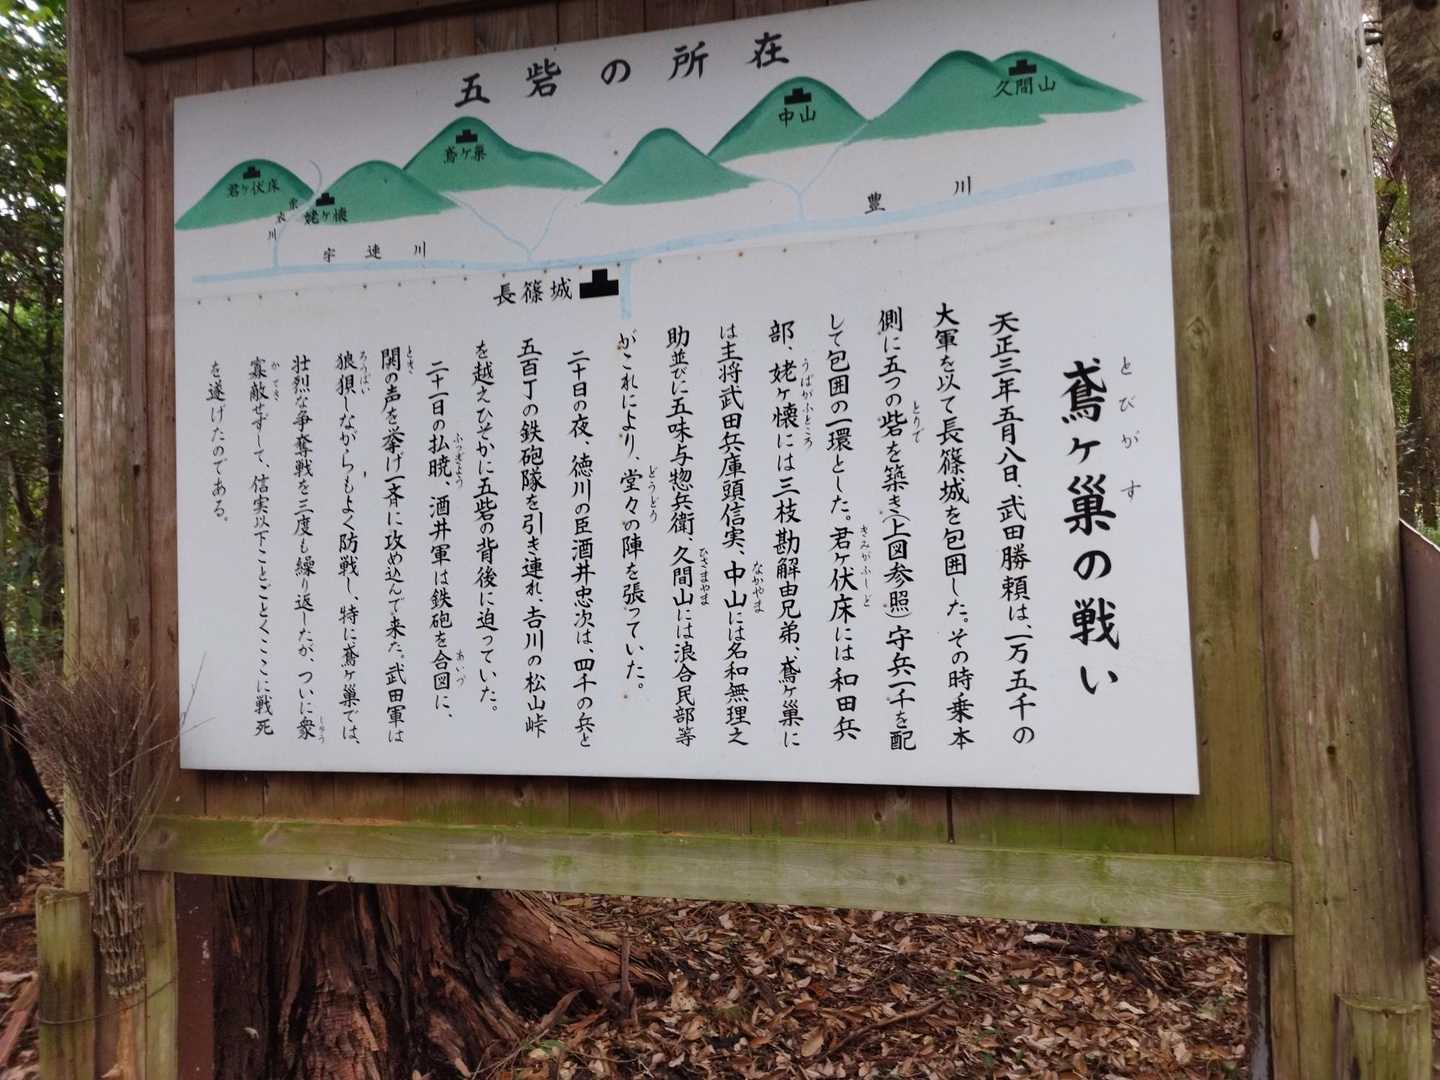 五砦の所在
久間山
中山
鳶ヶ巣
君ヶ伏床
姥ヶ懐
川
宇連川
豊川
長篠城
鳶ヶ巣の戦い
とびがす
天正三年五月八日、武田勝頼は、一万五千の
大軍を以て長篠城を包囲した。その時乗本
側に五つの砦を築き(上図参照)守兵一千を配
とりで
して包囲の一環とした。君ヶ伏床には和田兵
きみがふしど
部、姥ヶ懐には三枝勘解由兄弟、鳶ヶ巣に
うばがふところ
は主将武田兵庫頭信実、中山には名和無理之
なかやま
助並びに五味与惣兵衛、久間山には浪合民部等
ひさまやま
がこれにより、堂々の陣を張っていた。
どうどう
二十日の夜、徳川の臣酒井忠次は、四千の兵と
五百丁の鉄砲隊を引き連れ、吉川の松山峠
を越えひそかに五砦の背後に迫っていた。
二十一日の払暁、酒井軍は鉄砲を合図に、
ふつぎよう
あいづ
関の声を挙げ一斉に攻め込んで来た。武田軍は
とき
狼狽しながらもよく防戦し、特に鳶ヶ巣では、
ろうばい
壮烈な争奪戦を三度も繰り返したが、ついに衆
しゅう
寡敵せずして、信実以下ことごとくここに戦死
かてき
を遂げたのである。